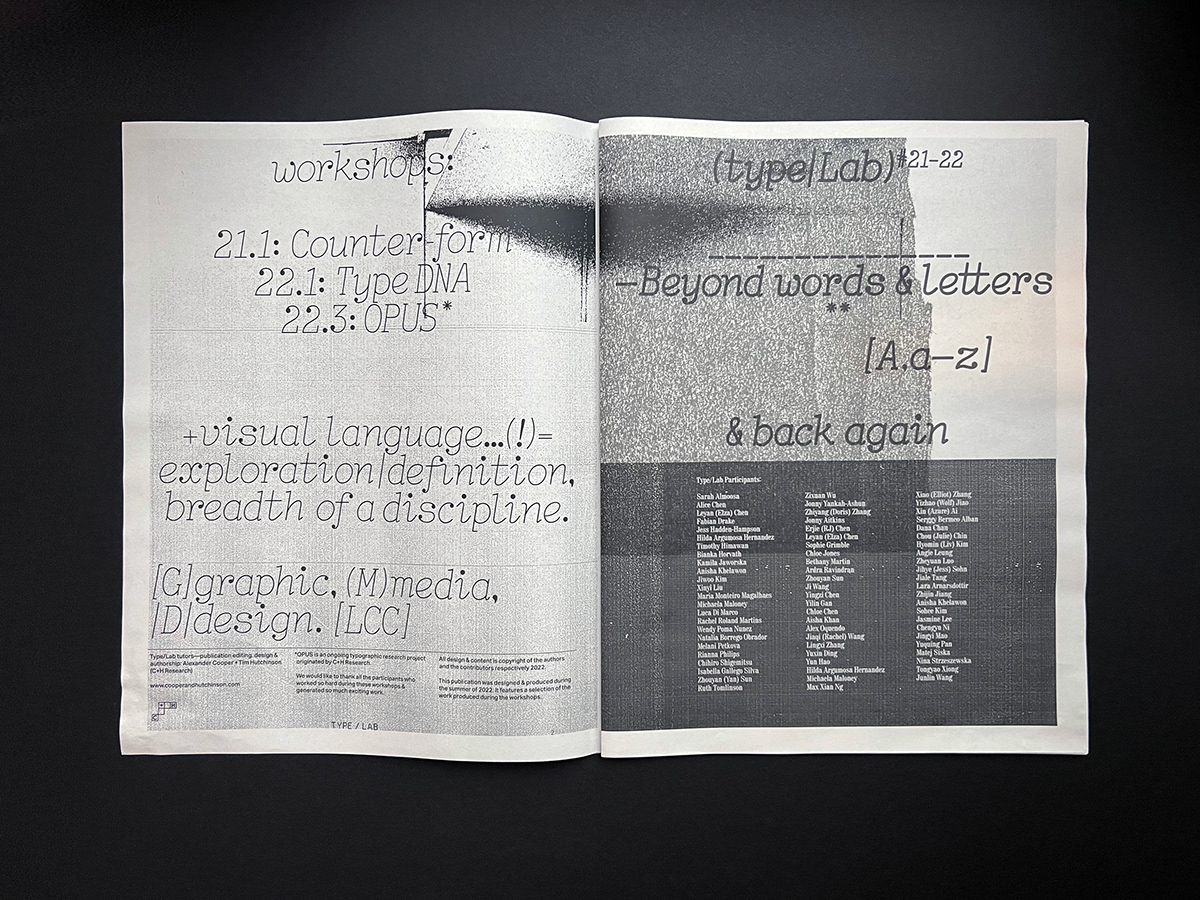 workshops:
21.1: Counter-form
22.1: Type DNA
22.3: OPUS*
+visual language...(!)=
exploration|definition,
breadth of a discipline.
[G]graphic, (M)media,
|D|design. [LCC]
Type/Lab tutors—publication editing, design &
authorship: Alexander Cooper + Tim Hutchinson
(C+H Research)
www.cooperandhutchinson.com
*OPUS is an ongoing typographic research project
originated by C+H Research.
We would like to thank all the participants who
worked so hard during these workshops &
generated so much exciting work.
All design & content is copyright of the authors
and the contributors respectively 2022.
This publication was designed & produced during
the summer of 2022. It features a selection of the
work produced during the workshops.
C + H
TYPE / LAB
2
(type|Lab)#21-22
–Beyond words & letters
**
[A.a–z]
& back again
Type/Lab Participants:
Sarah Almoosa
Alice Chen
Leyan (Elza) Chen
Fabian Drake
Jess Hadden-Hampson
Hilda Argumosa Hernandez
Timothy Himawan
Bianka Horvath
Kamila Jaworska
Anisha Khelawon
Jiwoo Kim
Xinyi Liu
Maria Monteiro Magalhaes
Michaela Maloney
Luca Di Marco
Rachel Roland Martins
Wendy Poma Nunez
Natalia Borrego Obrador
Melani Petkova
Rianna Philips
Chihiro Shigemitsu
Isabella Gallego Silva
Zhouyan (Yan) Sun
Ruth Tomlinson
Zixuan Wu
Jonny Yankah-Ashun
Zhiyang (Doris) Zhang
Jonny Aitkins
Erjie (RJ) Chen
Leyan (Elza) Chen
Sophie Grimble
Chloe Jones
Bethany Martin
Ardra Ravindran
Zhouyan Sun
Ji Wang
Yingzi Chen
Yilin Gan
Chloe Chen
Aisha Khan
Alex Oquendo
Jiaqi (Rachel) Wang
Lingxi Zhang
Yuxin Ding
Yun Hao
Hilda Argumosa Hernandez
Michaela Maloney
Max Xian Ng
Xiao (Elliot) Zhang
Yizhao (Wolf) Jiao
Xin (Azure) Ai
Serggy Bermeo Alban
Dana Chan
Chou (Julie) Chin
Hyomin (Liv) Kim
Angie Leung
Zheyuan Luo
Jihye (Jess) Sohn
Jiale Tang
Lara Arnarsdottir
Zhijin Jiang
Anisha Khelawon
Sohee Kim
Jasmine Lee
Chengyu Ni
Jingyi Mao
Yuquing Pan
Matej Siska
Nina Strzeszewska
Tongyao Xiong
Junlin Wang